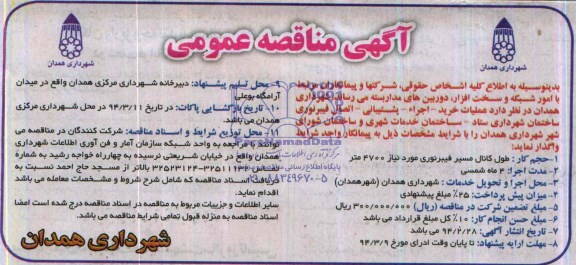 آگهی مناقصه عمومی
شهرداری همدان
شهرداری همدان
بدینوسیله به اطلاع کلیه اشخاص حقوقی، شرکتها و پیمانکاران مرتبط
با امور شبکه و سخت افزار، دوربین های مداربسته می رساند شهرداری
همدان در نظر دارد عملیات خرید - اجراء - پشتیبانی - اتصال فیبرنوری
ساختمان شهرداری ستاد - ساختمان خدمات شهری و ساختمان شورای
شهر شهرداری همدان را با شرایط مشخصات ذیل به پیمانکار واجد شرایط
واگذار نماید:
۱- حجم کار: طول کانال مسیر فیبرنوری مورد نیاز ۴۷۰۰ متر
۲- مدت اجرا: ۲ ماه شمسی
۳- محل اجرا و تحویل خدمات: شهرداری همدان (شهرهمدان)
۴- میزان پیش پرداخت: ۲۵٪ مبلغ پیشنهادی
۵- مبلغ تضمین شرکت در مناقصه (ریال): ۳۰۰/۰۰۰/۰۰۰ ریال
۶- مبلغ حسن انجام کار: ۱۰٪ کل مبلغ قرارداد می باشد
۷- تاریخ انتشار آگهی: ۹۴/۲/۲۸ می باشد.
۸- مهلت ارایه پیشنهاد: تا پایان وقت اداری مورخ ۹۴/۳/۹
۹- محل تسلیم پیشنهاد: دبیرخانه شهرداری مرکزی همدان واقع در میدان
آرامگاه بوعلی
۱۰- تاریخ بازگشایی پاکات: در تاریخ ۹۴/۳/۱۱ در محل شهرداری مرکزی
همدان می باشد.
۱۱- محل توزیع شرایط و اسناد مناقصه: شرکت کنندگان در مناقصه می
توانند با مراجعه به واحد شبکه سازمان آمار و فن آوری اطلاعات شهرداری
همدان واقع در خیابان شریعتی نرسیده به چهارراه خواجه رشید به شماره
تماس ۳۲۵۱۱۱۳۶-۳۲۵۲۳۱۲۴ بالاتر از مسجد حاج احمد نسبت به
دریافت اسناد مناقصه که شامل شرح شروط و مشخصات معامله می باشد
اقدام نماید.
سایر اطلاعات و جزییات مربوط به مناقصه در اسناد مناقصه درج شده است امضا
اسناد مناقصه به منزله قبول تمامی شرایط مناقصه می باشد.
شهرداری همدان